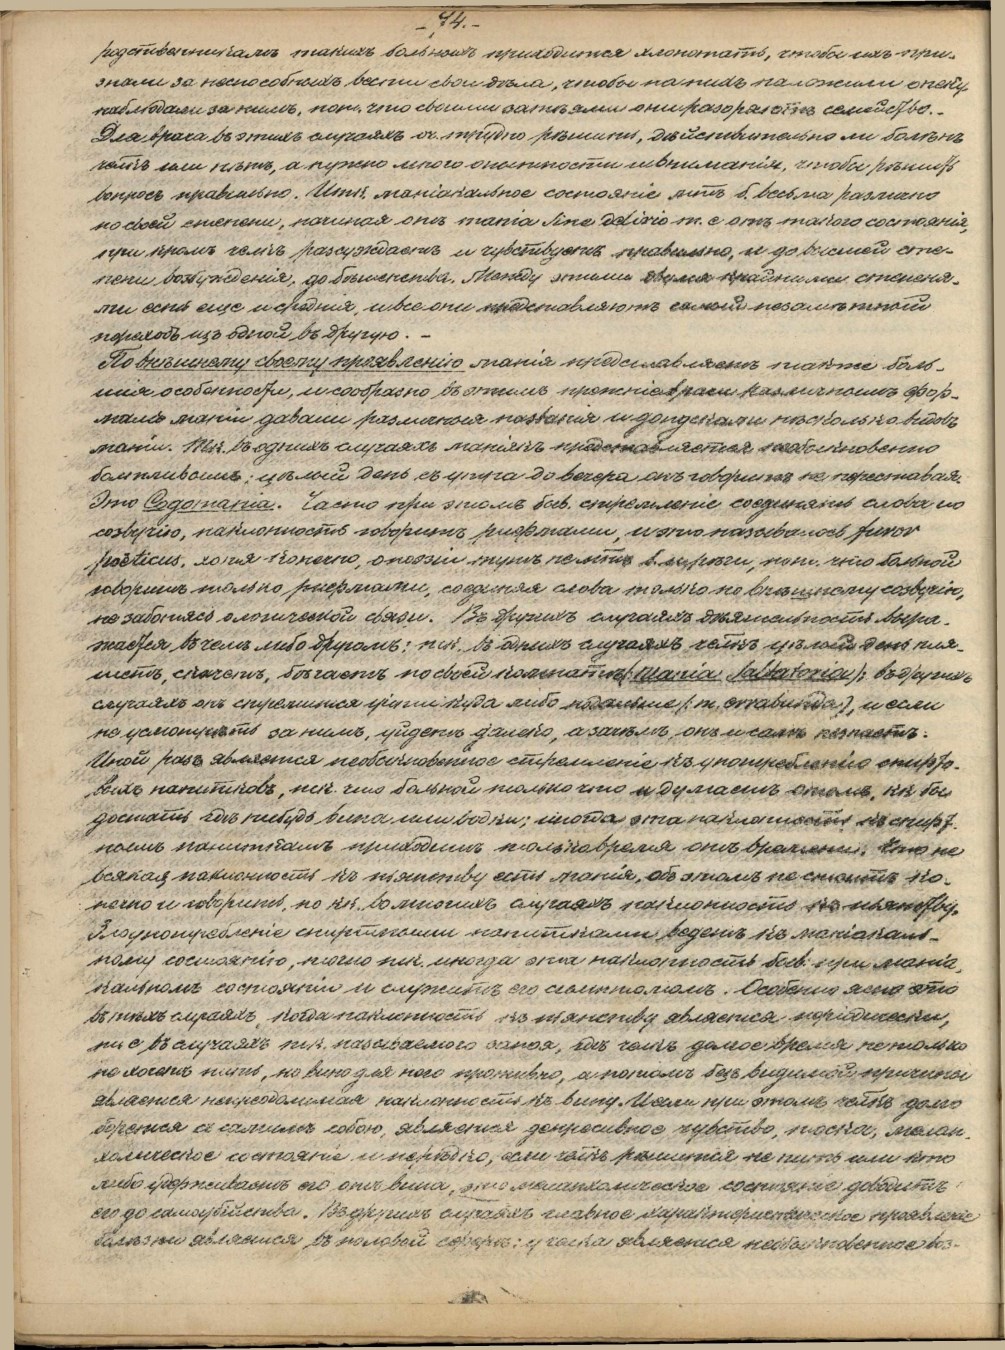 -74.-
родственникамъ такихъ больныхъ приходится хлопотать, чтобы ихъ при-
знали за неспособныхъ вести свои дѣла, чтобы на нихъ наложили опеку,
наблюдали за ними, пот. что своими затѣями они разоряютъ семейство.-
Для врача въ этихъ случаяхъ оч. трудно рѣшить, дѣйствительно ли боленъ
челкъ или нѣтъ, а нужно много опытности и вниманія, чтобы рѣшить
вопросъ правильно. Итк. маніакальное состояніе мтъ б. весьма различно
по своей степени, начиная отъ mania sine delirio т. е отъ такого состоянія,
при кромъ челкъ разсуждаетъ и чувствуетъ правильно, и до высшей сте-
пени возбужденія, до бѣшенства. Между этими двумя крайними степеня-
ми есть еще и средняя, и все они представляютъ самый незамѣтный
переходъ изъ одной въ другую. -
По внѣшнему своему проявленію манія представляетъ также боль-
шія особенности, и сообразно съ этимъ прежніе врачи различнымъ фор-
мамъ маніи давали различныя названія и допускали нѣсколько видовъ
маніи. Тк. въ однихъ случаяхъ маніякъ представляется необыкновенно
болтливымъ; цѣлый день съ утра до вечера онъ говоритъ не переставая.
Это Часто при этомъ быв. стремленіе соединять слова по
созвучію, наклонность говорить рифмами, и это называлось furor
poëticus, хотя конечно, о поэзіи тутъ не мтъ б. и рѣчи, пот. что больной
говоритъ только рифмами, соединяя слова только по внѣшнему созвучію,
не заботясь о логической связи. Въ другихъ случаяхъ дѣятельность выра-
жается въ чемъ либо другомъ: тк. въ однихъ случаяхъ челкъ цѣлый день пля-
шетъ, скачетъ, бѣгаетъ по своей комнатѣ (mania saltatoria); въ другихъ
случаяхъ онъ стремится уйти куда либо подальше и если
не усмотрѣть за нимъ, уйдетъ далеко, а зачѣмъ, онъ и самъ не знаетъ.
Иной разъ является необыкновенное стремленіе къ употребленію спирто-
выхъ напитковъ, тк. что больной только что и думаетъ о томъ, кк бы
достать гдѣ нибудь вина или водки; иногда эта наклонность къ спирт.
нымъ напиткамъ приходитъ только время отъ времени. Что не
всякая наклонность къ пьянству есть манія, объ этомъ не стоитъ ко-
нечно и говорить, но кк. во многихъ случаяхъ наклонность къ пьянству,
Злоупотребленіе спиртными напитками ведетъ къ маніакаль-
ному состоянію, точно тк. иногда эта наклонность быв. при маніа-
кальномъ состояніи и служитъ его симптомомъ. Особенно ясно это
въ тѣхъ случаяхъ, когда наклонность къ пьянству является періодически,
т. е въ случаяхъ тк. называемого запоя, гдѣ челкъ долгое время не только
не хочетъ пить, но вино для него противно, а потомъ безъ видимой причины
является непреодолимая наклонность къ вину. И если при этомъ челкъ долго
борется съ самимъ собою, является депресивное чувство, тоска, мелан-
холическое состояніе и нерѣдко, если челкъ рѣшится не пить или кто
либо удерживаетъ его отъ вина, это меланхолическое состояніе доводитъ
его до самоубійства. Въ другихъ случаяхъ главное характеристическое проявленіе
болѣзни является въ половой сферѣ: у челка является необыкновенное воз-